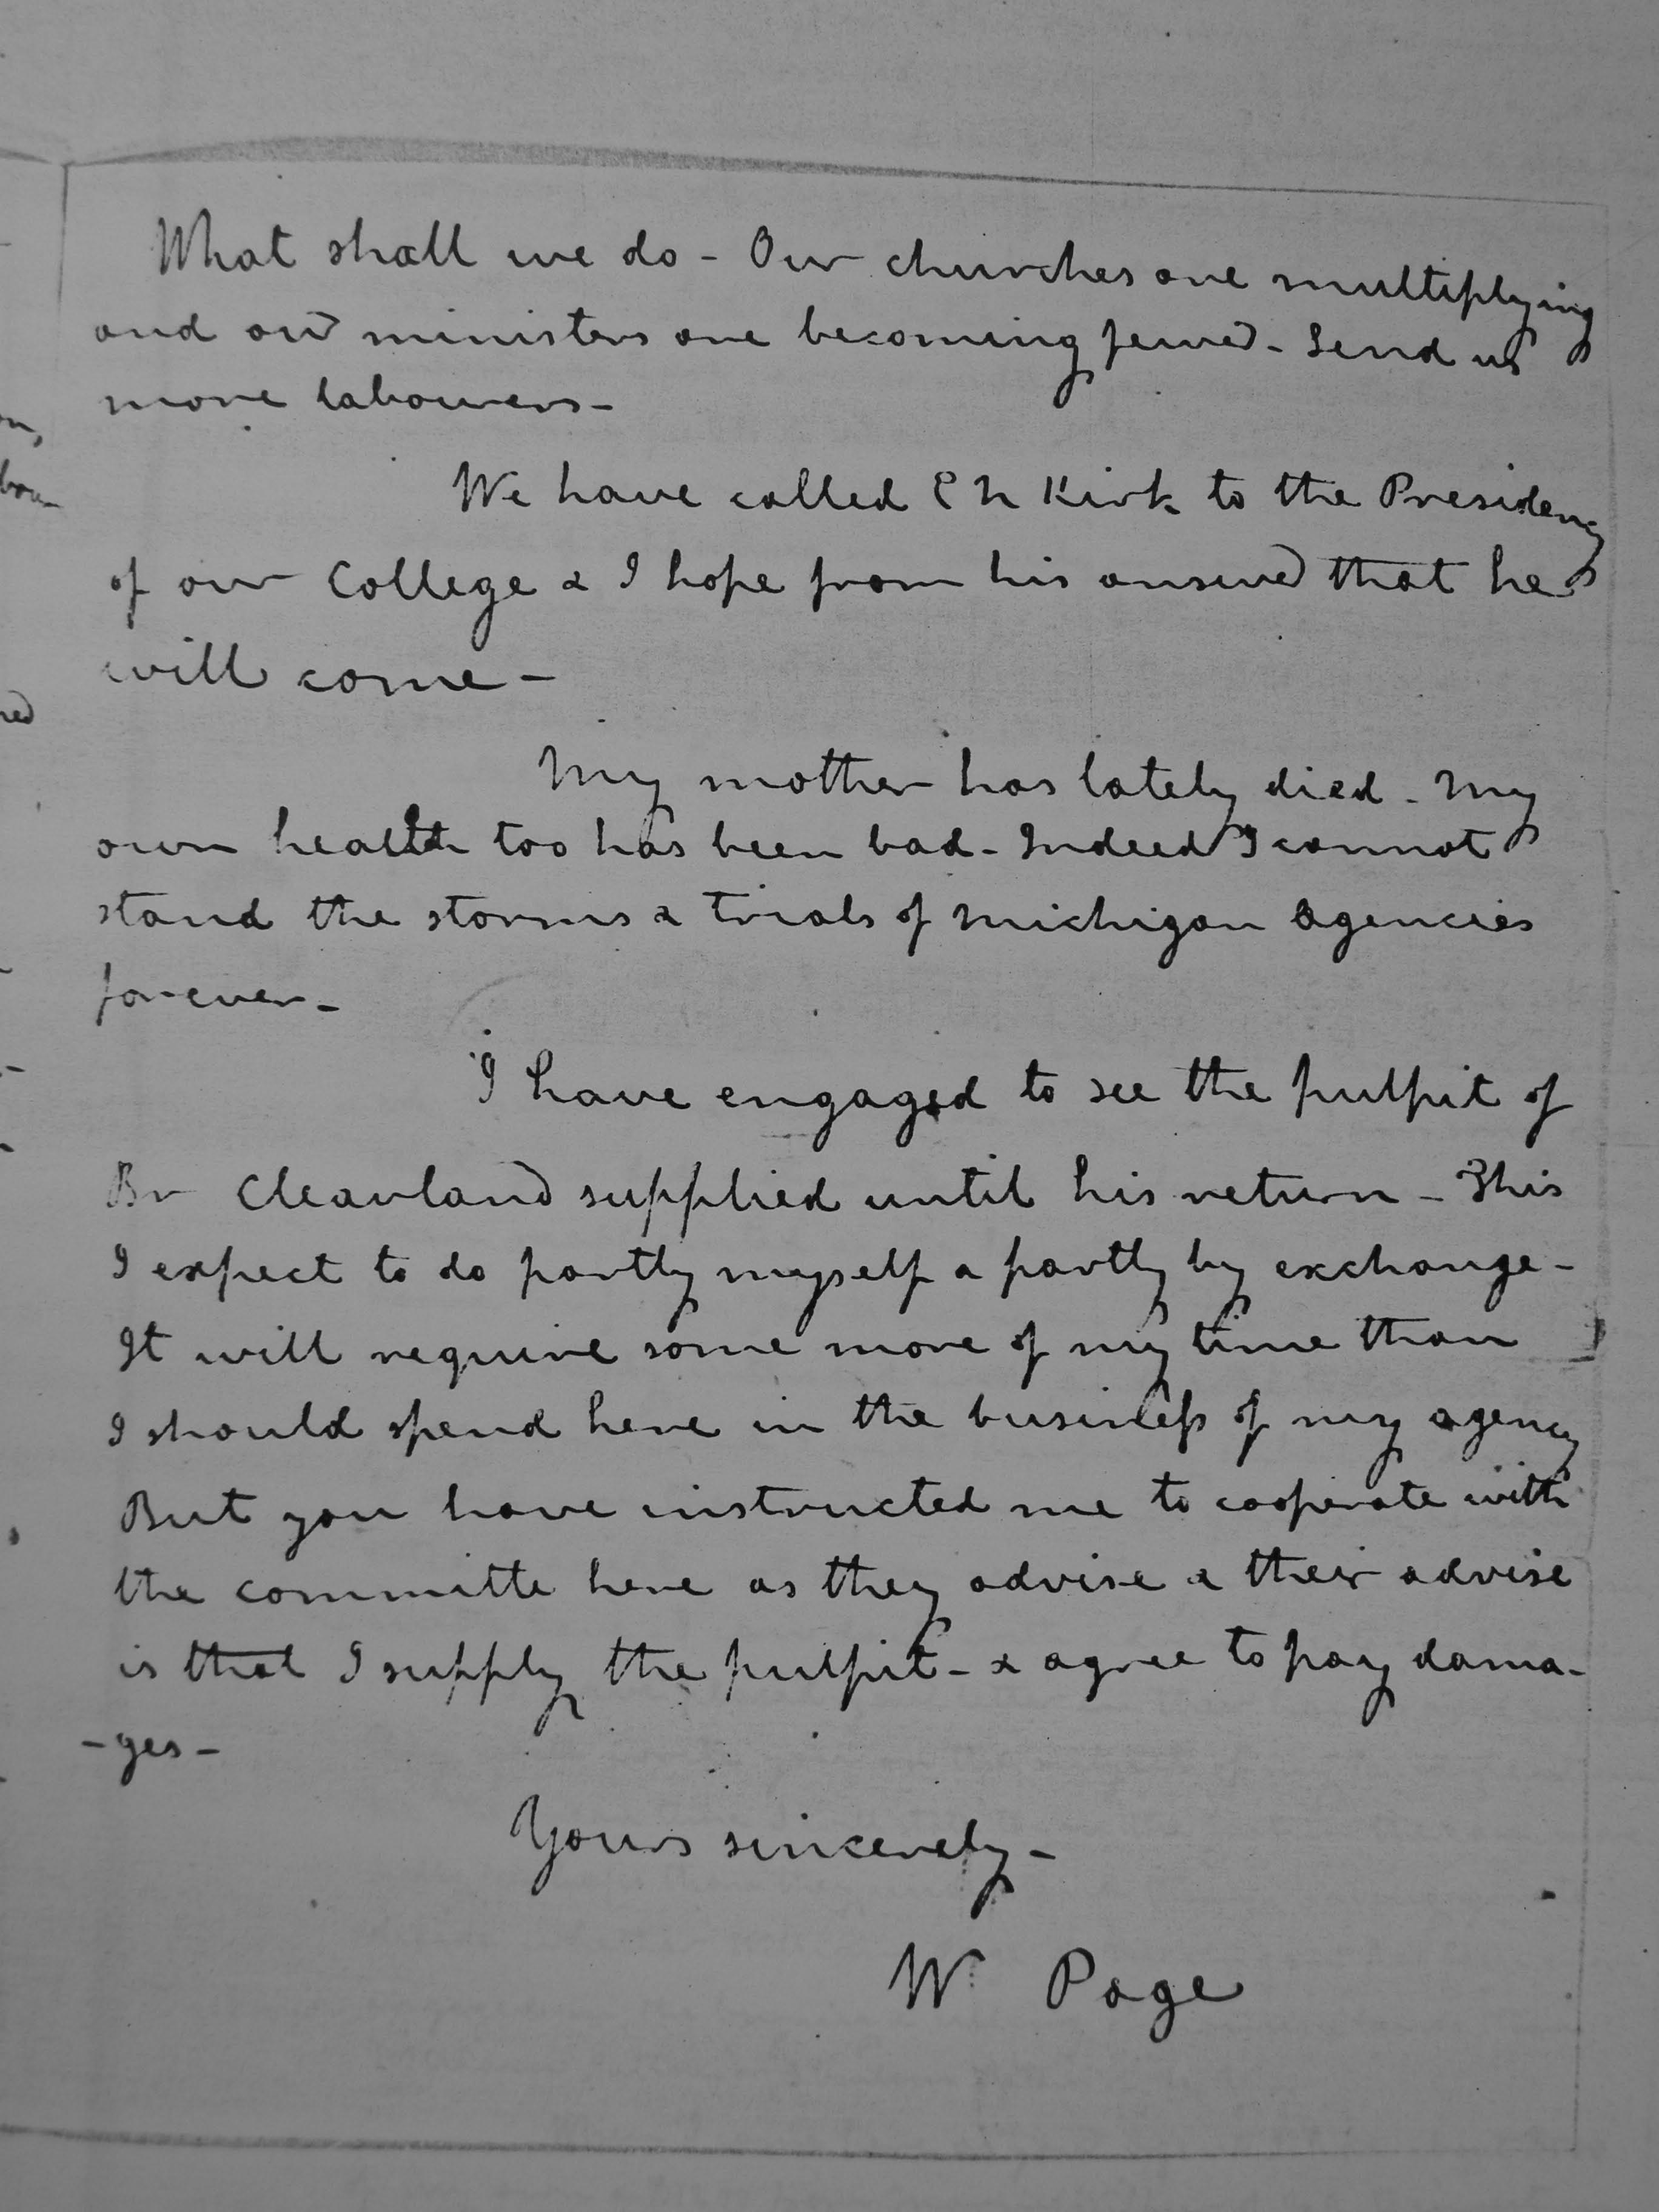 What shall we do - Our churches are multiplying
and our ministers are becoming fewer - Send us
more labourers -
We have called E N Kirk to the Presidency
of our College & I hope from his answer that he
will come -
My mother has lately died - My
own health too has been bad - Indeed I cannot
stand the storms & trials of Michigan Agencies
forever -
I have engaged to see the pulpit of
Br Cleavland supplied until his return - This
I expect to do partly myself & partly by exchange -
It will require some more of my time than
I should spend here in the business of my agency
But you have instructed me to cooperate with
the committe here as they advise & their advise
is that I supply the pulpit - & agree to pay dama-
-ges -
Yours sincerely -
W. Page